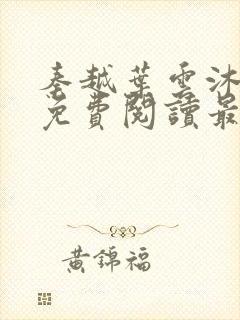 秦越葉雲沐
免費閱讀最
黃錦福